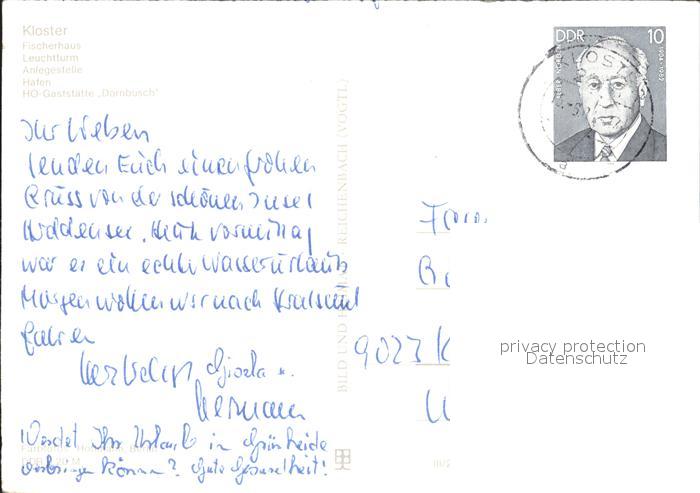 Kloster
Fischerhaus
Leuchtturm
Anlegestelle
Hafen
HO-Gaststätte „Dornbusch"
DDR 10
1904-1982
KLOST
Ihr Lieben
senden Euch einen frohen
Gruss von der schönen Insel
Hiddensee. Heute vormittag
war es ein echter Wasserurlaub
Morgen wollen wir nach Stralsund
fahren
Herzlichst Gisela u.
Hermann
Werdet Ihr Urlaub in Grünheide
verbringen können? Gute Gesundheit!
BILD UND REICHENBACH (VOGTL)
9023 K
privacy protection
Datenschutz